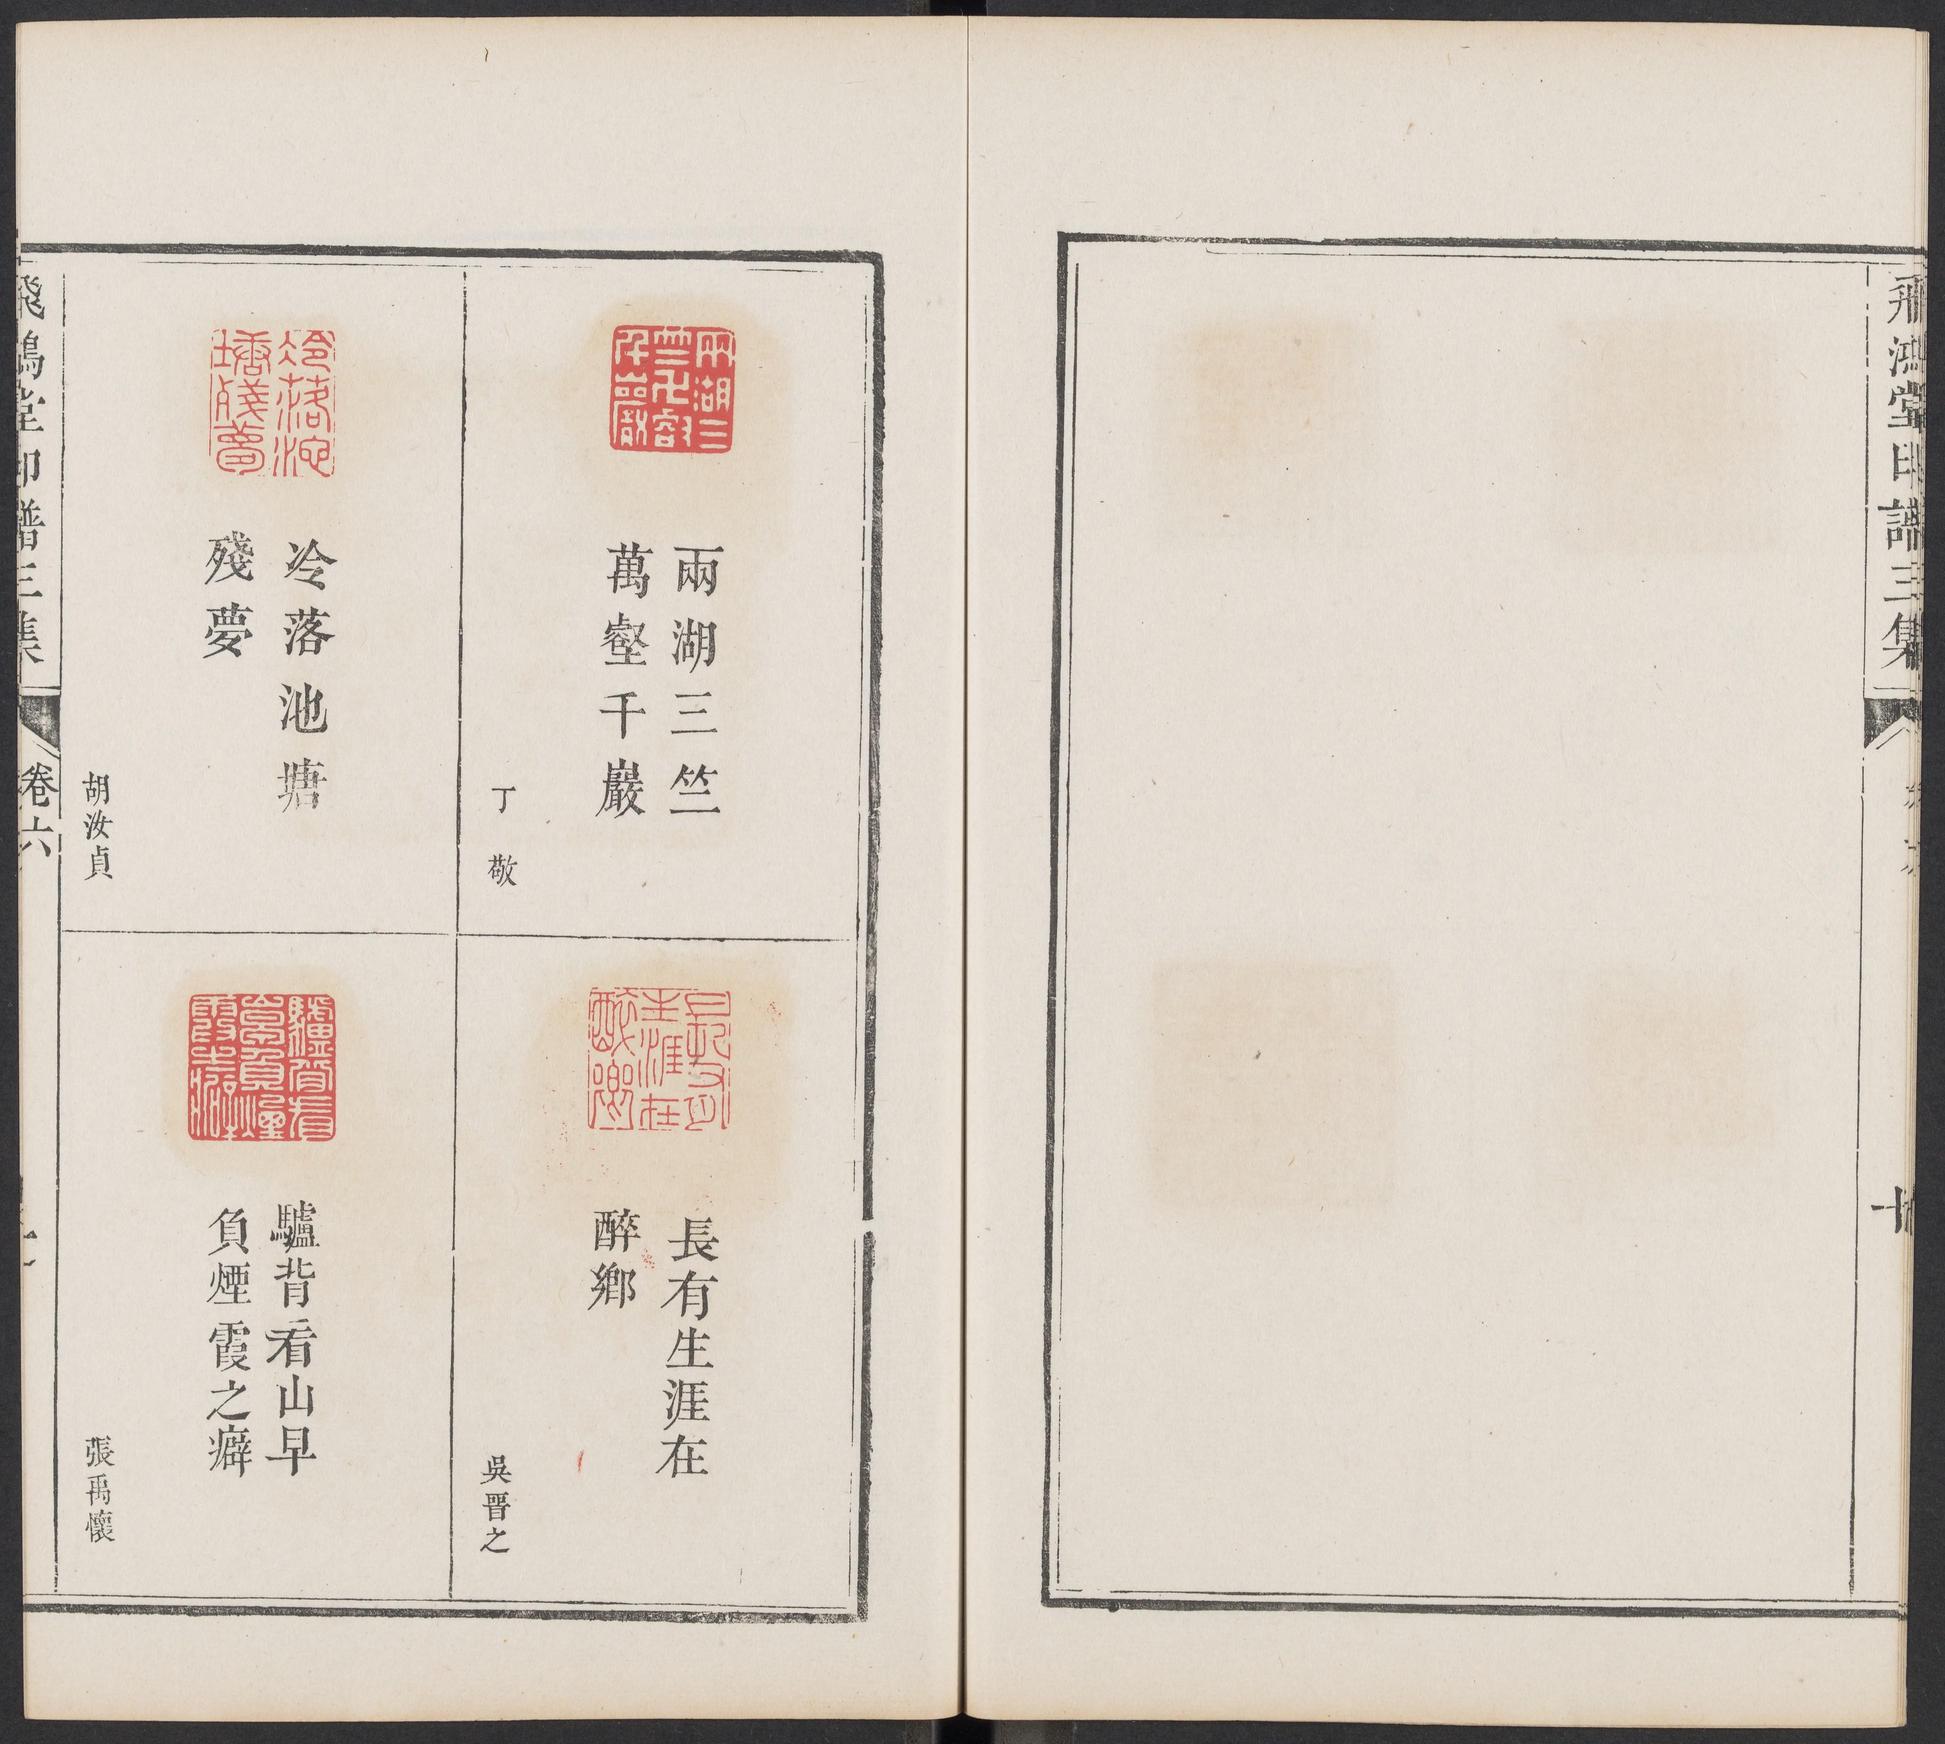 飛鴻堂印譜三集
兩湖三竺
萬壑千巖
丁敬
長有生涯在
醉鄉
吳晉之
冷落池塘
殘夢
胡汝貞
驢背看山早
負煙霞之癖
張禹懷
飛鴻堂印譜三集
卷六